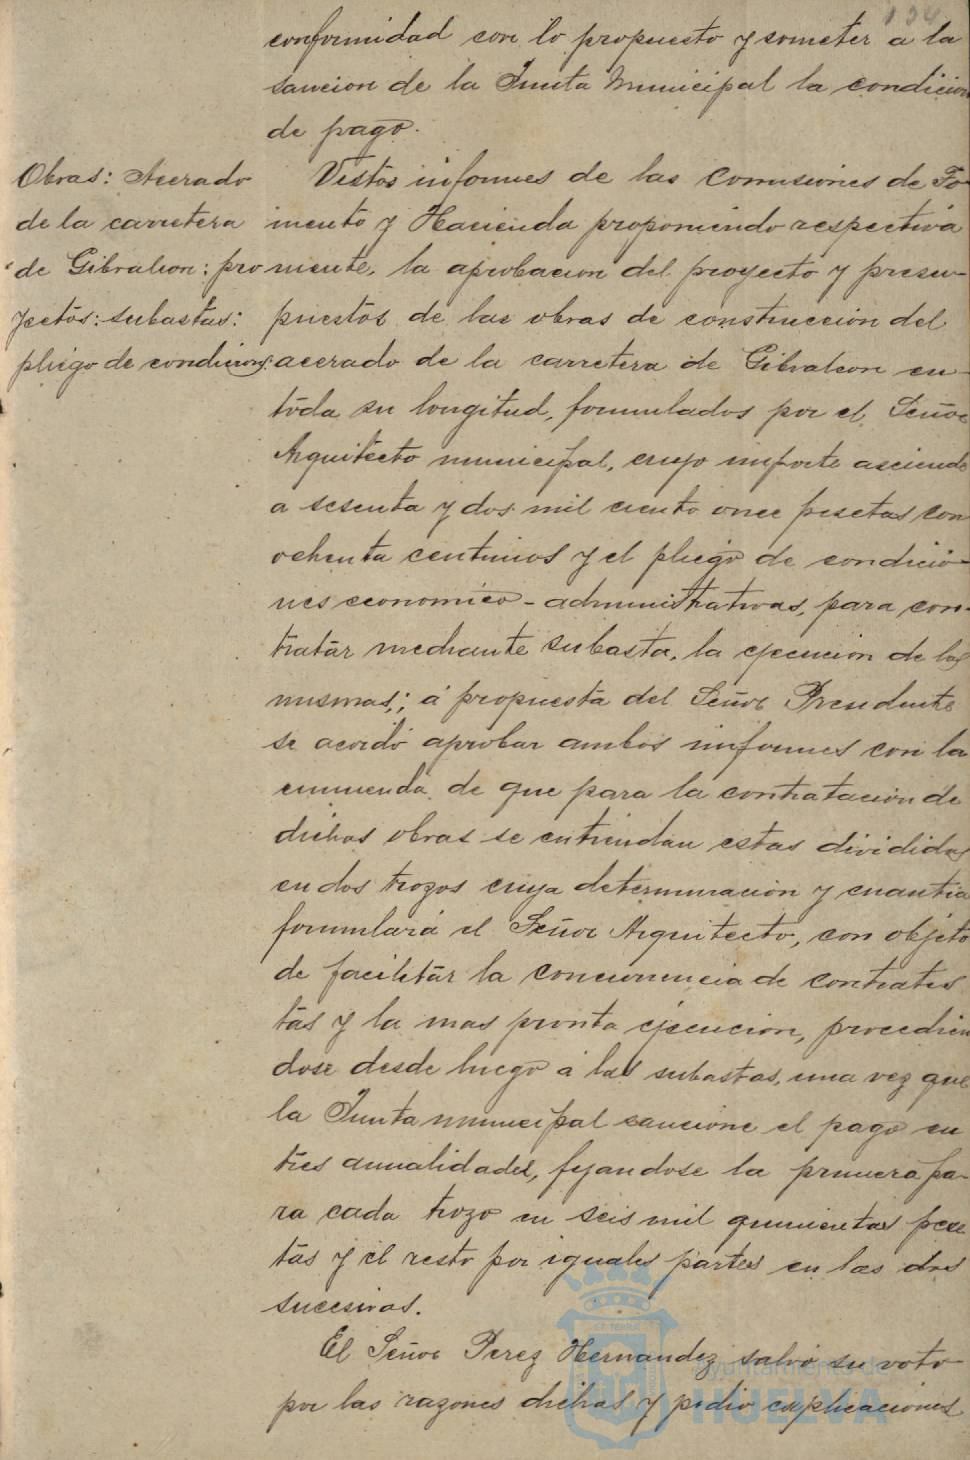 134
conformidad con lo propuesto y someter a la
sancion de la Junta Municipal la condicion
de pago.
Obras: Acerado
de la carretera
de Gibraleon: pro
yectos: subastas:
pliego de condiciones:
Vistos informes de las Comisiones de Fo-
mento y Hacienda proponiendo respectiva
mente, la aprobacion del proyecto y presu-
puestos de las obras de construcción del
acerado de la carretera de Gibraleon en
toda su longitud, formulados por el Señor
Arquitecto municipal, cuyo importe asciende
a sesenta y dos mil ciento once pesetas con
ochenta centimos y el pliego de condicio-
nes economico-administrativas, para con-
tratar mediante subasta, la ejecucion de las
mismas; á propuesta del Señor Presidente
se acordó aprobar ambos informes con la
enmienda de que para la contratación de
dichas obras se entiendan estas divididas
en dos trozos cuya determinación y cuantia
formulará el Señor Arquitecto, con objeto
de facilitar la concurrencia de contratis
tas y la mas pronta ejecucion, procedien
dose desde luego á las subastas, una vez que
la Junta municipal sancione el pago en
tres anualidades, fijandose la primera pa-
ra cada trozo en seis mil quinientas pese
tas y el resto por iguales partes en las dos
sucesivas.
El Señor Perez Hernandez salvó su voto
por las razones dichas y pidio explicaciones
Ayuntamiento de
HUELVA